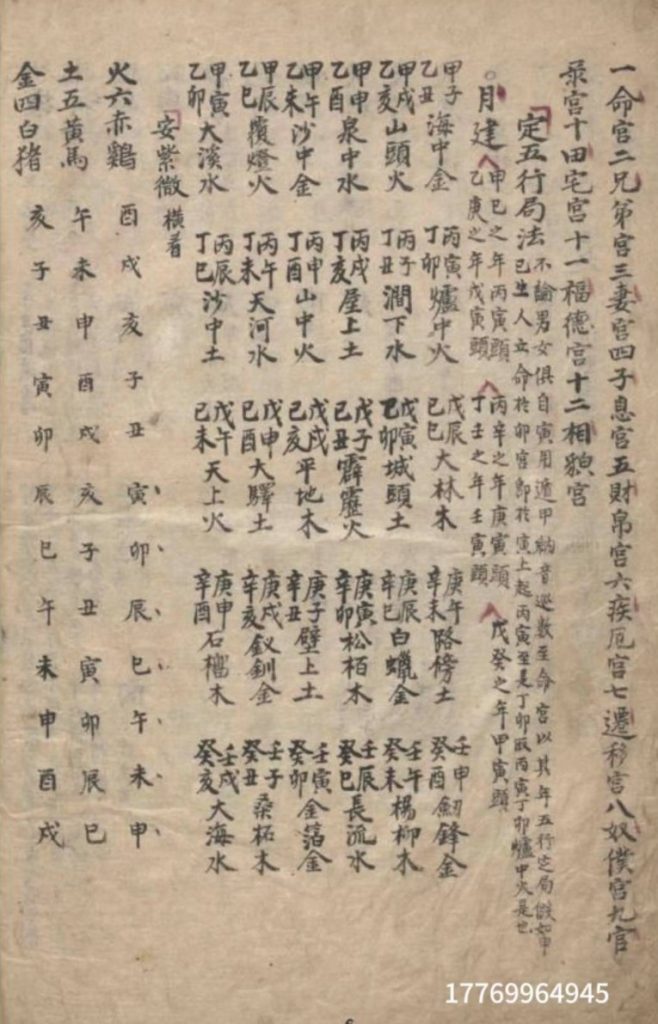 一命宫二兄弟宫三妻宫四子息宫五財帛宫六疾厄宫七遷移宫八奴僕宫九官
录宫十田宅宫十一福德宫十二相貌宫
定五行局法 不論男女俱自寅用遁甲納音巡数至命宫以其年五行定局假如甲
己生人立命於卯宫即於寅上起丙寅至是丁卯取丙寅丁卯爐中火是也
。月建 甲巳之年丙寅頭 丙辛之年庚寅頭 戊癸之年甲寅頭
乙庚之年戊寅頭 丁壬之年壬寅頭
甲子乙丑海中金 丙寅丁卯爐中火 戊辰己巳大林木 庚午辛未路傍土 壬申癸酉劍鋒金
甲戌乙亥山頭火 丙子丁丑澗下水 戊寅乙卯城頭土 庚辰辛巳白蠟金 壬午癸未楊柳木
甲申乙酉泉中水 丙戌丁亥屋上土 戊子己丑霹靂火 庚寅辛卯松栢木 壬辰癸巳長流水
甲午乙未沙中金 丙申丁酉山中火 戊戌己亥平地木 庚子辛丑壁上土 壬寅癸卯金箔金
甲辰乙巳覆燈火 丙午丁未天河水 戊申己酉大驛土 庚戌辛亥釵釧金 壬子癸丑桑柘木
甲寅乙卯大溪水 丙辰丁巳沙中土 戊午己未天上火 庚申辛酉石榴木 壬戌癸亥大海水
安紫微 横看
火六赤鷄 酉戌亥子丑寅卯辰巳午未申
土五黄馬 午未申酉戌亥子丑寅卯辰巳
金四白猪 亥子丑寅卯辰巳午未申酉戌
17769964945